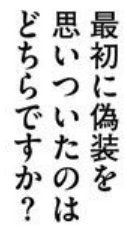 最初に偽装を
思いついたのは
どちらですか？